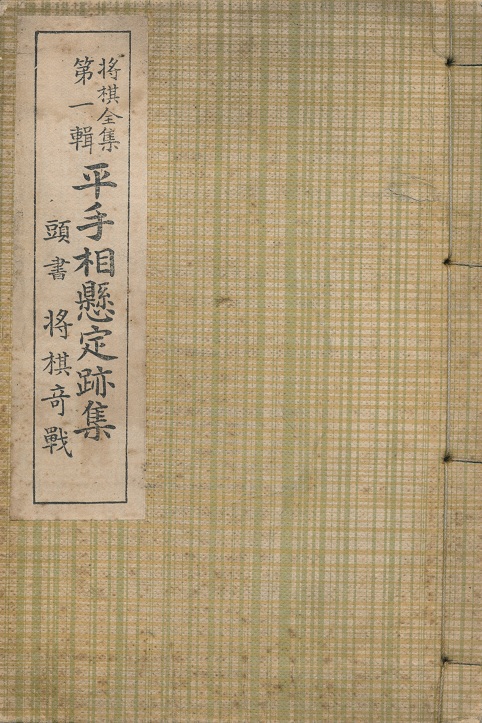 将棋全集
第一輯
平手相懸定跡集
頭書 将棋奇戰